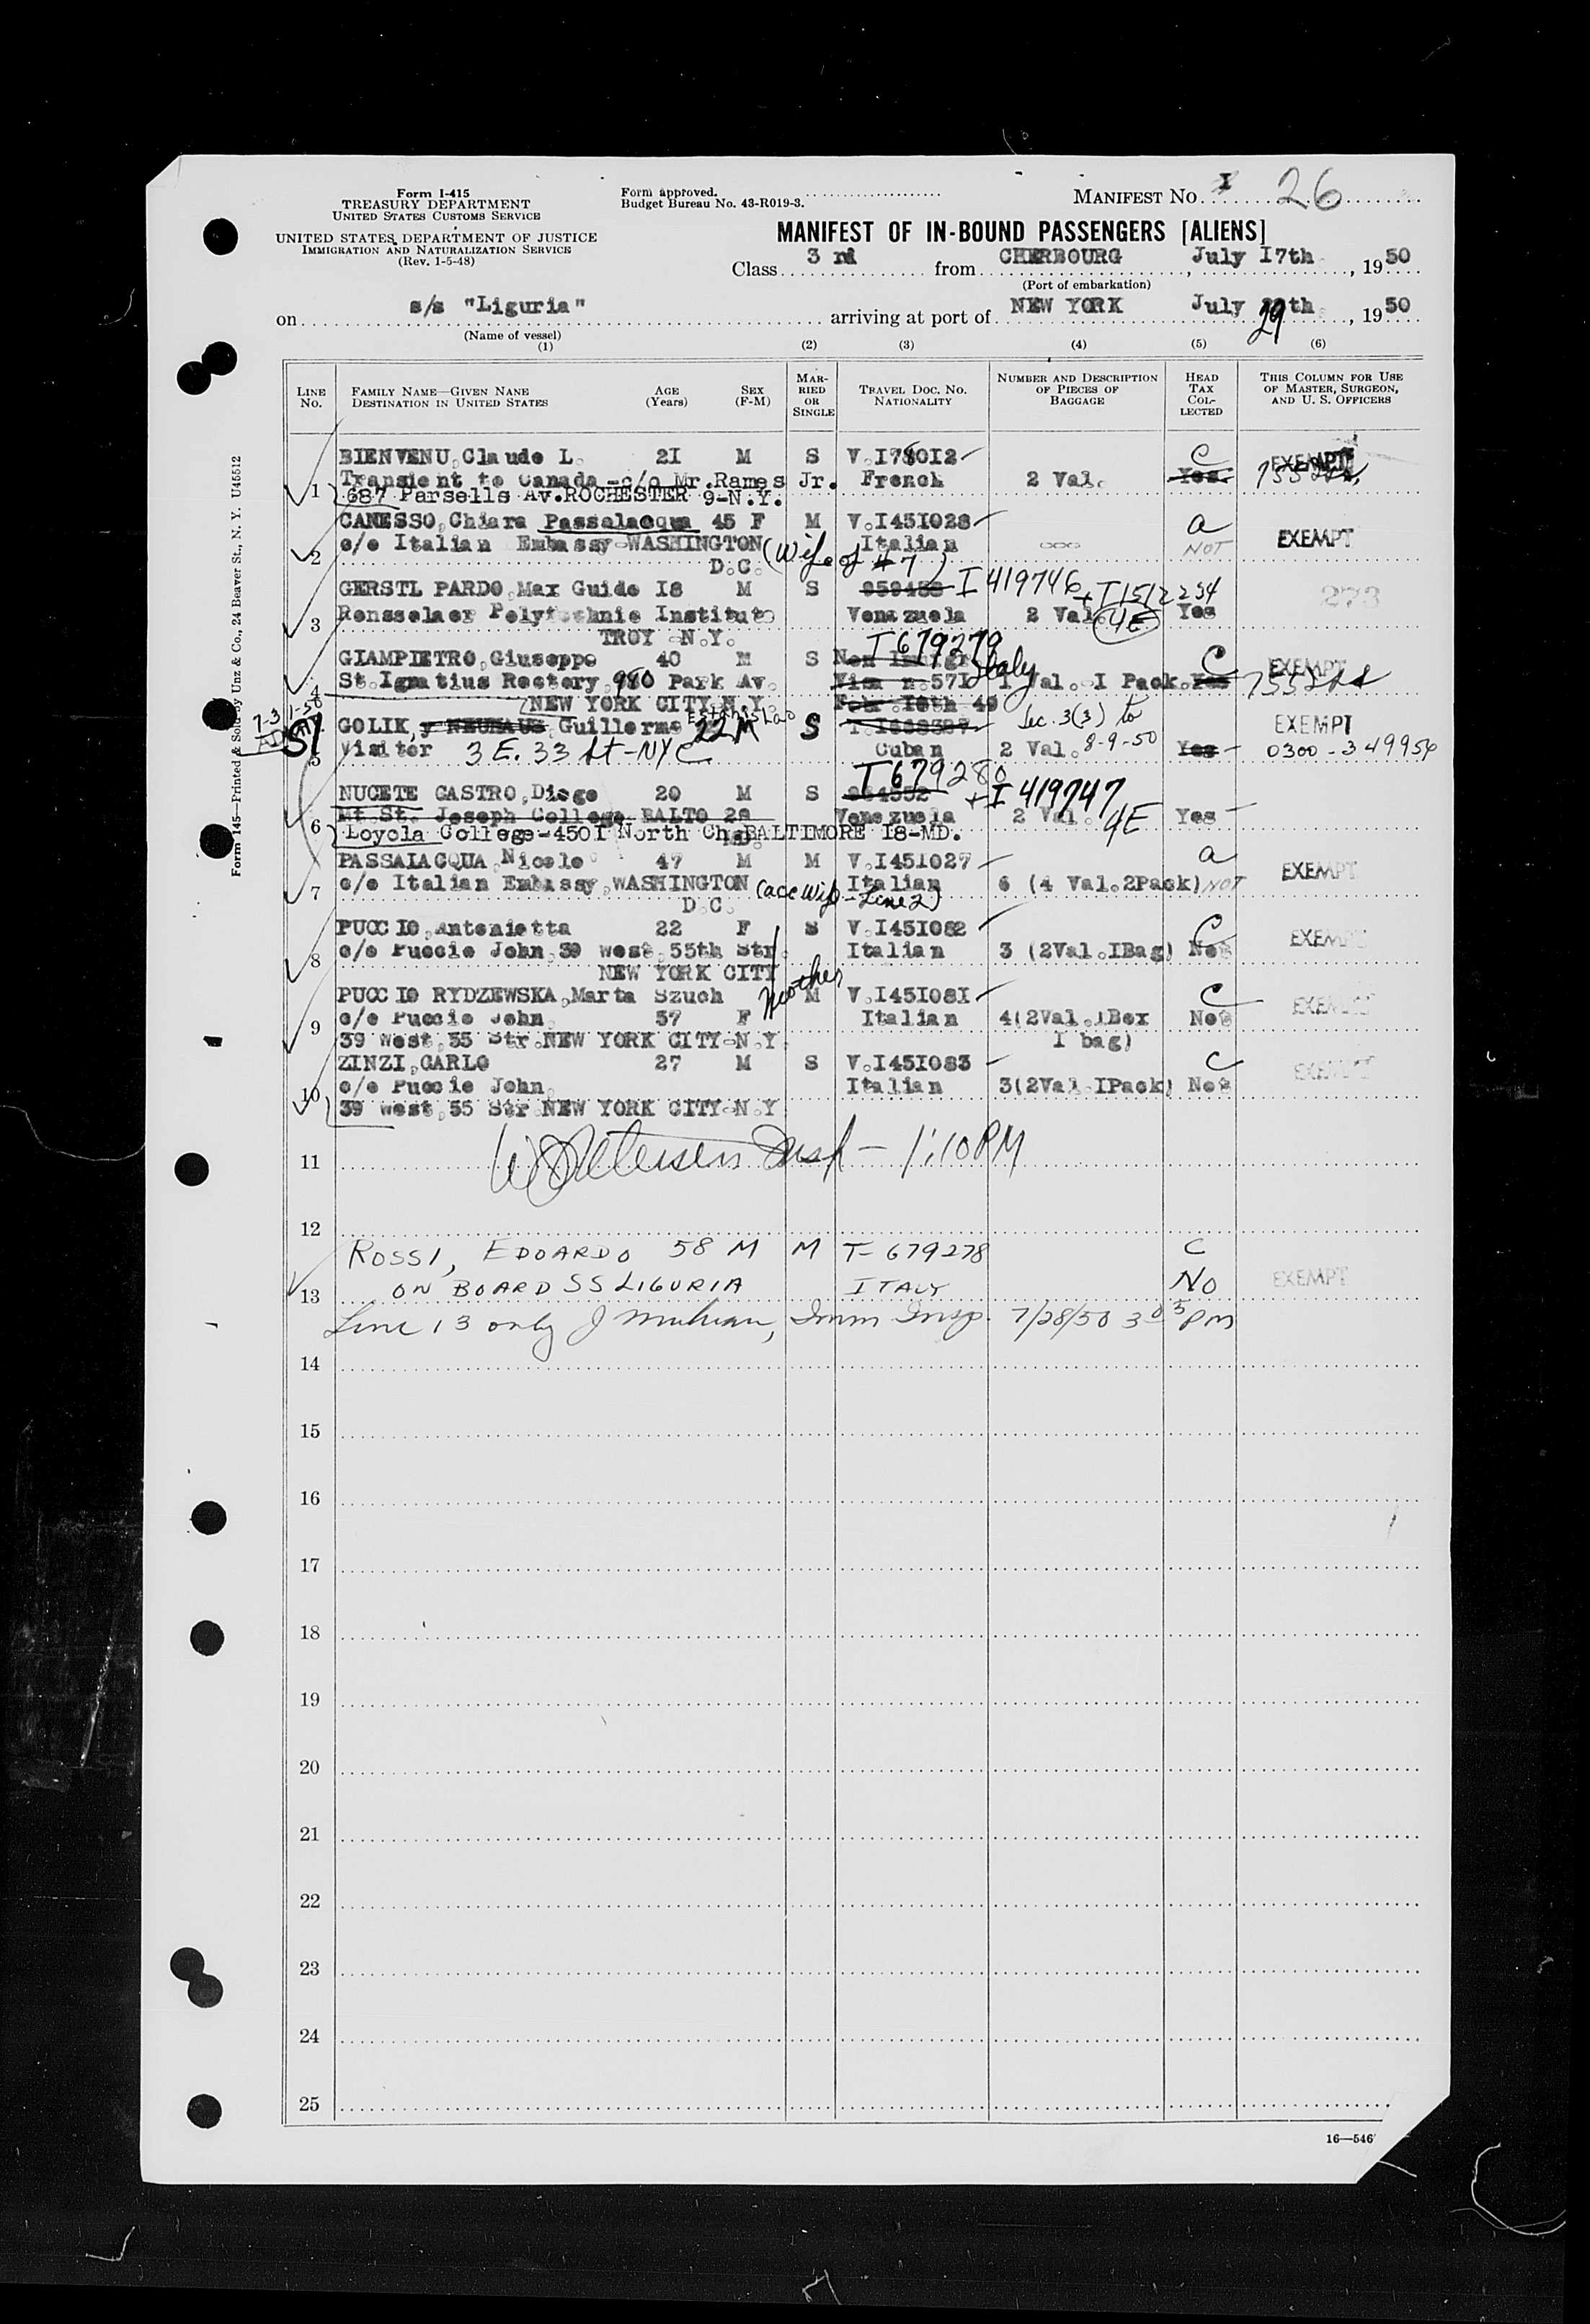 Form I-415
TREASURY DEPARTMENT
UNITED STATES CUSTOMS SERVICE
UNITED STATES DEPARTMENT OF JUSTICE
IMMIGRATION AND NATURALIZATION SERVICE
(Rev. 1-5-48)
Form approved.
Budget Bureau No. 43-R019-3.
MANIFEST No. I 26
MANIFEST OF IN-BOUND PASSENGERS [ALIENS]
Class 3 rd from CHERBOURG, July I7th, 1950
(Port of embarkation)
on s/s "Liguria" arriving at port of NEW YORK July 29th, 1950
(Name of vessel)
(1) (2) (3) (4) (5) (6)
LINE No. FAMILY NAME—GIVEN NANE DESTINATION IN UNITED STATES AGE (Years) SEX (F-M) MARRIED OR SINGLE TRAVEL DOC. NO. NATIONALITY NUMBER AND DESCRIPTION OF PIECES OF BAGGAGE HEAD TAX COLLECTED THIS COLUMN FOR USE OF MASTER, SURGEON, AND U. S. OFFICERS
BIENVENU,Claude L. 2I M S V.I780I2 C EXEMPT
Transient to Canada -c/o Mr.Rames Jr. French 2 Val. Yes.
1 687 Parsells Av.ROCHESTER 9-N.Y.
CANESSO,Chiara Passalacqua 45 F M V.I45I028 a EXEMPT
2 c/o Italian Embassy-WASHINGTON Italian NOT
D.C. (Wife of #7)
GERSTL PARDO,Max Guido I8 M S I 419746 + T1512234 273
3 Rensselaer Polytechnic Institute Venezuela 2 Val. 4E Yes
TROY -N.Y.
T 679279
GIAMPIETRO,Giuseppe 40 M S Non Immigr Italy C EXEMPT
4 St.Ignatius Rectory,980 Park Av. Visa n.57I I Val. I Pack. Yes
NEW YORK CITY N.Y. Feb.I8th 49
GOLIK, y NEUHAUS, Guillermo Estanislao 22 M S Sec. 3(3) to EXEMPT
5 Visitor 3 E. 33 St-NYC Cuban 2 Val. 8-9-50 Yes 0300-349954
T 679280
NUCETE CASTRO,Diego 20 M S + I 419747
Mt.St. Joseph College BALTO 29 Venezuela 2 Val. 4E Yes
6 Loyola College-450I North Ch. BALTIMORE I8-MD.
PASSALACQUA,Nicolo 47 M M V.I45I027 a EXEMPT
7 c/o Italian Embassy,WASHINGTON Italian 6 (4 Val.2Pack) NOT
D.C. (acc wife - Line 2)
PUCCIO,Antonietta 22 F S V.I45I082 C EXEMPT
8 c/o Puccio John,39 West,55th Str. Italian 3 (2Val.IBag) Not
NEW YORK CITY
PUCCIO RYDZEWSKA,Marta Szuch mother M V.I45I08I C EXEMPT
9 c/o Puccio John, 57 F Italian 4(2Val.1Box Not
39 West,55 Str.NEW YORK CITY-N.Y. I bag)
ZINZI,CARLO 27 M S V.I45I083 C EXEMPT
10 c/o Puccio John, Italian 3(2Val.IPack) Not
39 West,55 Str.NEW YORK CITY-N.Y
11 Insp - 1:10 PM
12
ROSSI, EDOARDO 58 M M T-679278 C
13 ON BOARD SS LIGURIA ITALY NO EXEMPT
Line 13 only J Imm Insp. 7/28/50 3 05 pm
14
15
16
17
18
19
20
21
22
23
24
25
Form 145—Printed & Sold by Unz & Co., 24 Beaver St., N. Y. U45512